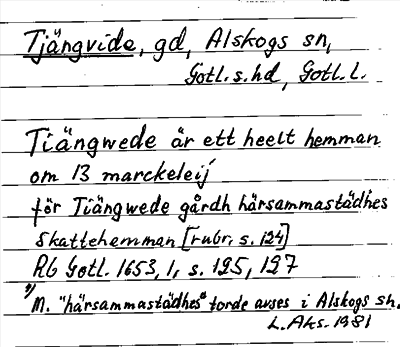 Tjängvide, gd, Alskogs sn,
Gotl. s. hd, Gotl. l.
Tiängwede är ett heelt hemman
om 13 marckeleij
för Tiängwede gårdh härsammastädhes
skattehemman [rubr. s. 124]
RG Gotl. 1653, 1, s. 125, 127
M. "härsammastädhes" torde avses i Alskogs sn.
L. Aks. 1981